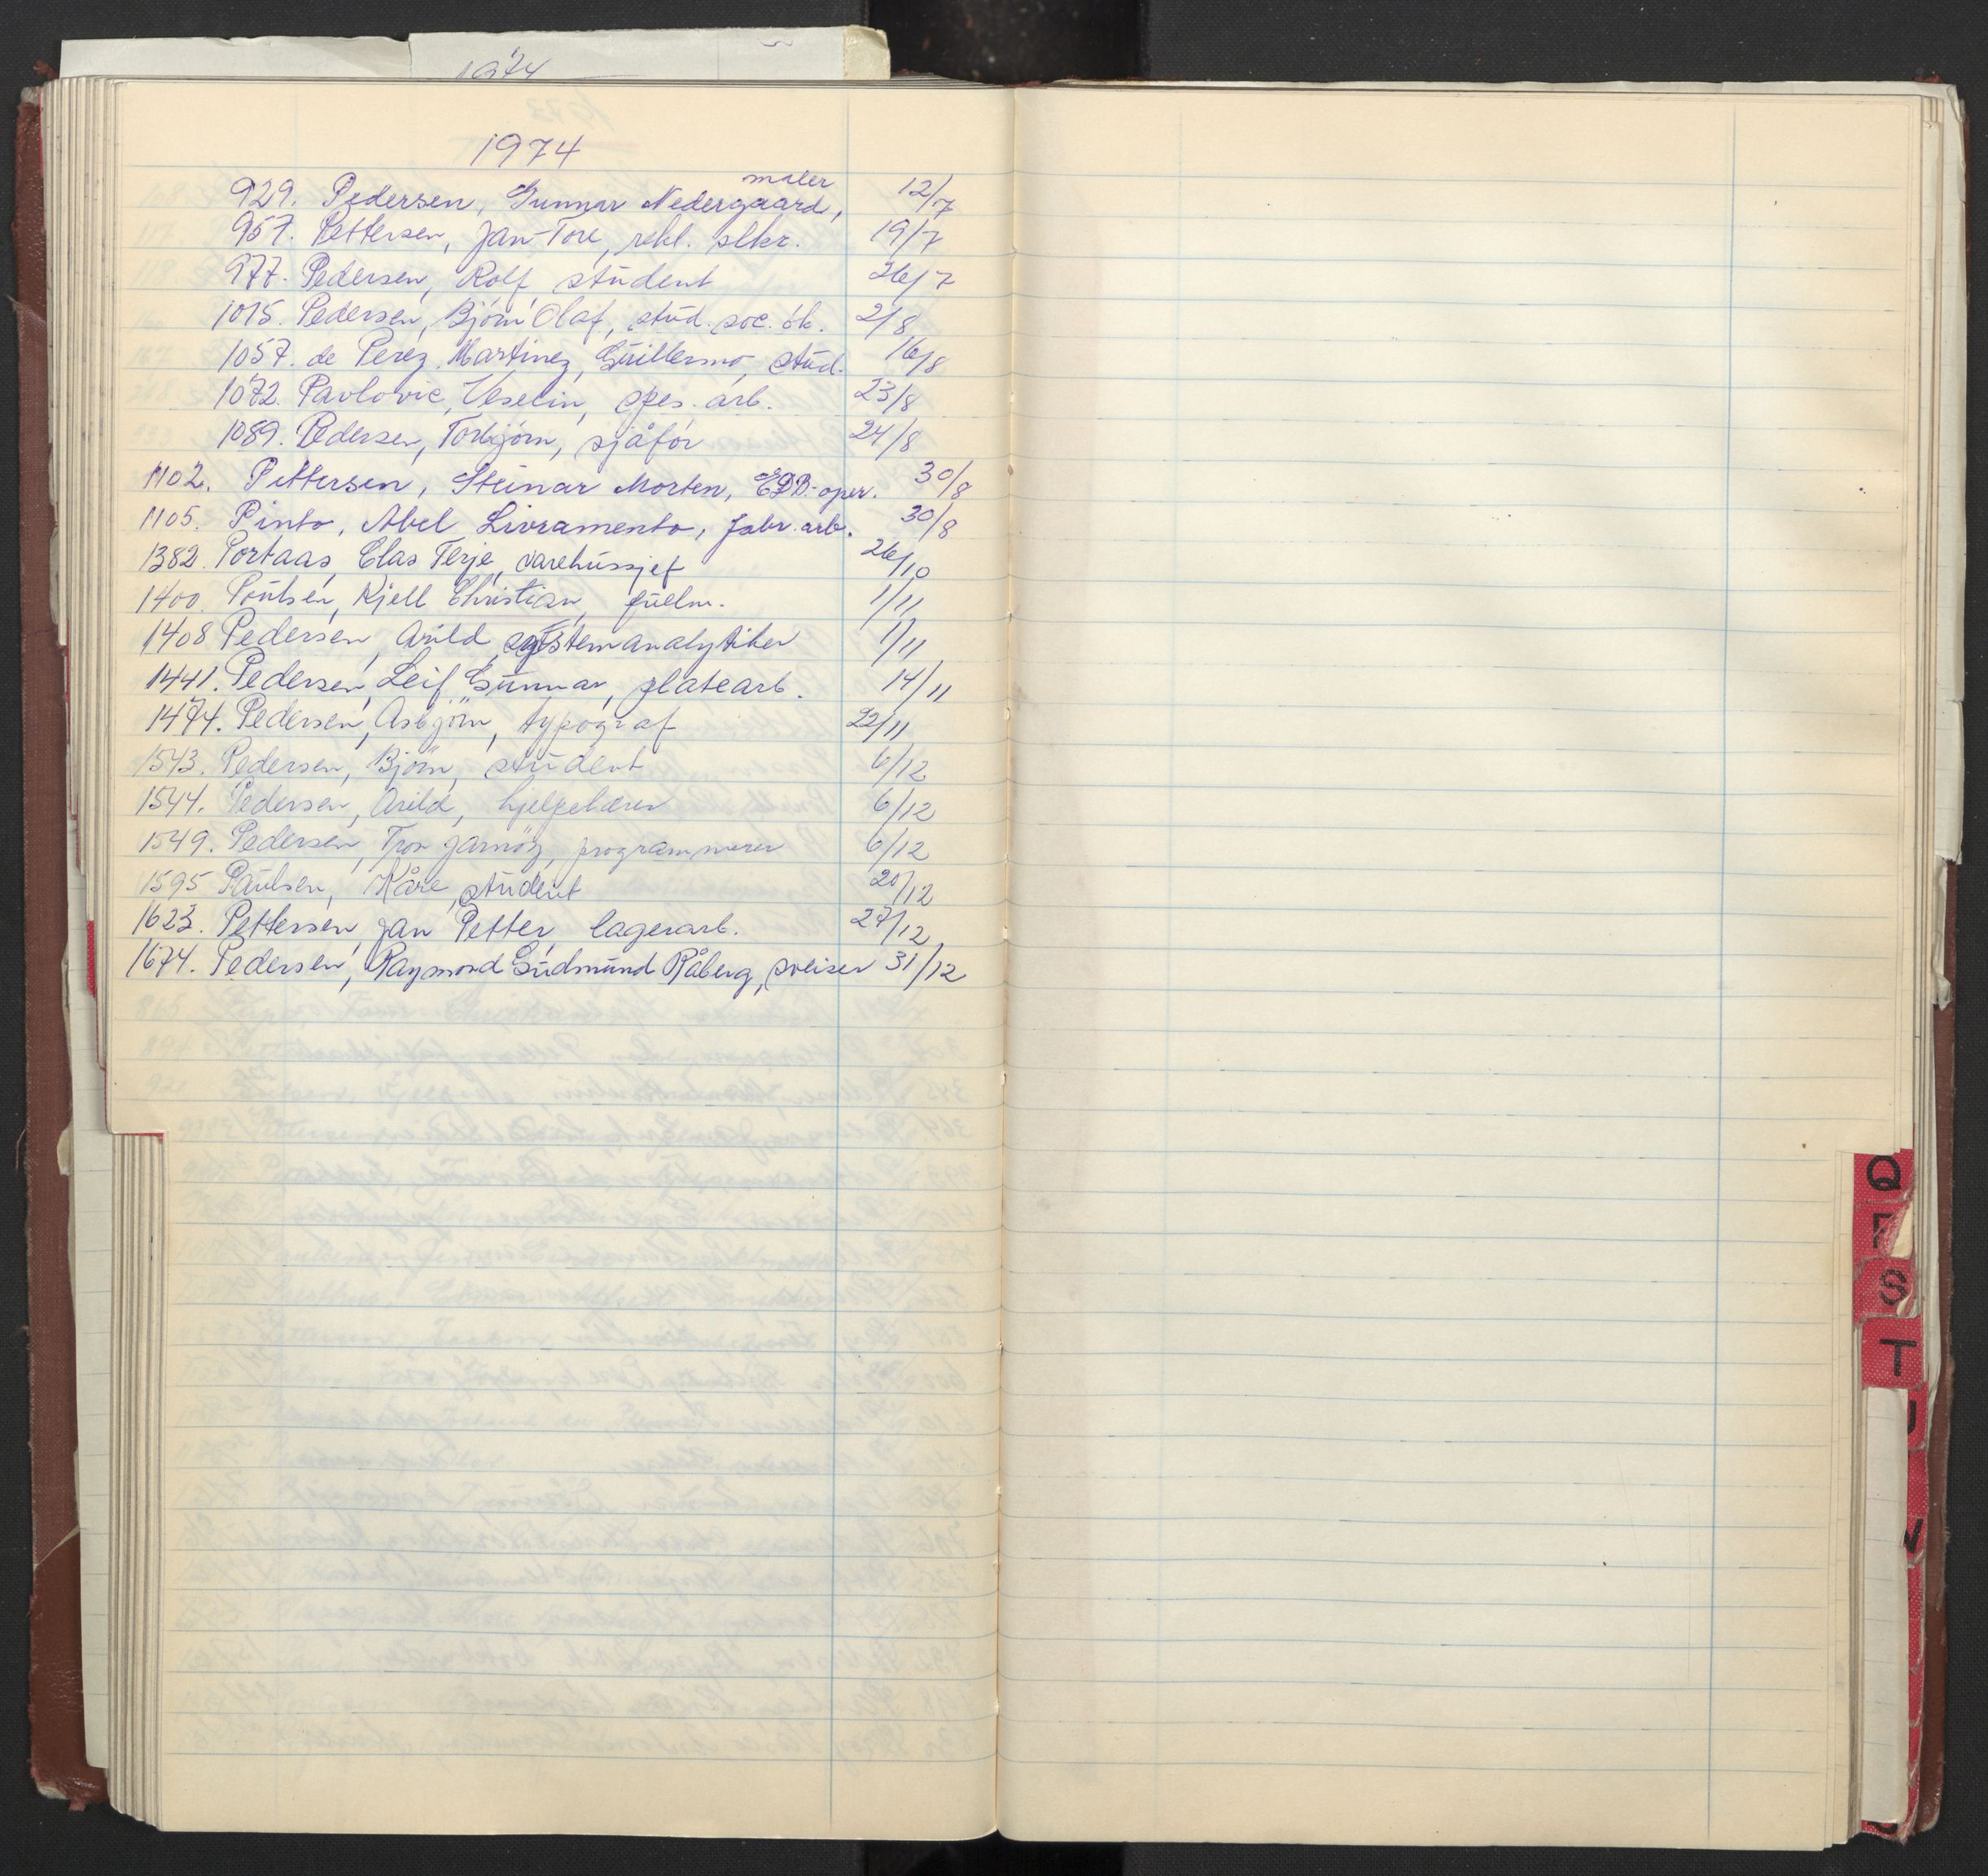 1974
1974
maler
929. Pedersen, Gunnar Nedergaard, 12/7
957. Pettersen, Jan-Tore, rekl. slkr. 19/7
977. Pedersen, Rolf, student 26/7
1015. Pedersen, Bjørn Olaf, stud. soc. øk. 2/8
1057. de Perez Martinez, Guillermo, stud. 16/8
1072. Pavlovic, Veselin, spes. arb. 23/8
1089. Pedersen, Torbjørn, sjåfør 24/8
1102. Pettersen, Steinar Morten, EDB-oper. 30/8
1105. Pinto, Abel Livramento, fabr. arb. 30/8
1382. Portaas, Clas Terje, varehussjef 26/10
1400. Poulsen, Kjell Christian, fullm. 1/11
1408 Pedersen, Arild, systemanalytiker 1/11
1441. Pedersen, Leif Gunnar, platearb. 14/11
1474. Pedersen, Asbjörn, typograf 22/11
1543. Pedersen, Bjørn, student 6/12
1544. Pedersen, Arild, hjelpelærer 6/12
1549. Pedersen, programmerer 6/12
1595 Paulsen, Kåre, student 20/12
1623. Pettersen, Jan Petter, lagerarb. 27/12
1674. Pedersen, Raymond Gudmund Råberg, sveiser 31/12
Q
R
S
T